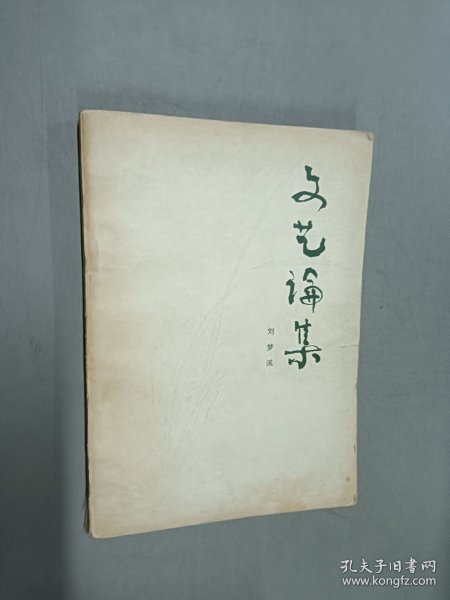 文艺论集
刘梦溪
孔夫子旧书网
www.kongfz.com